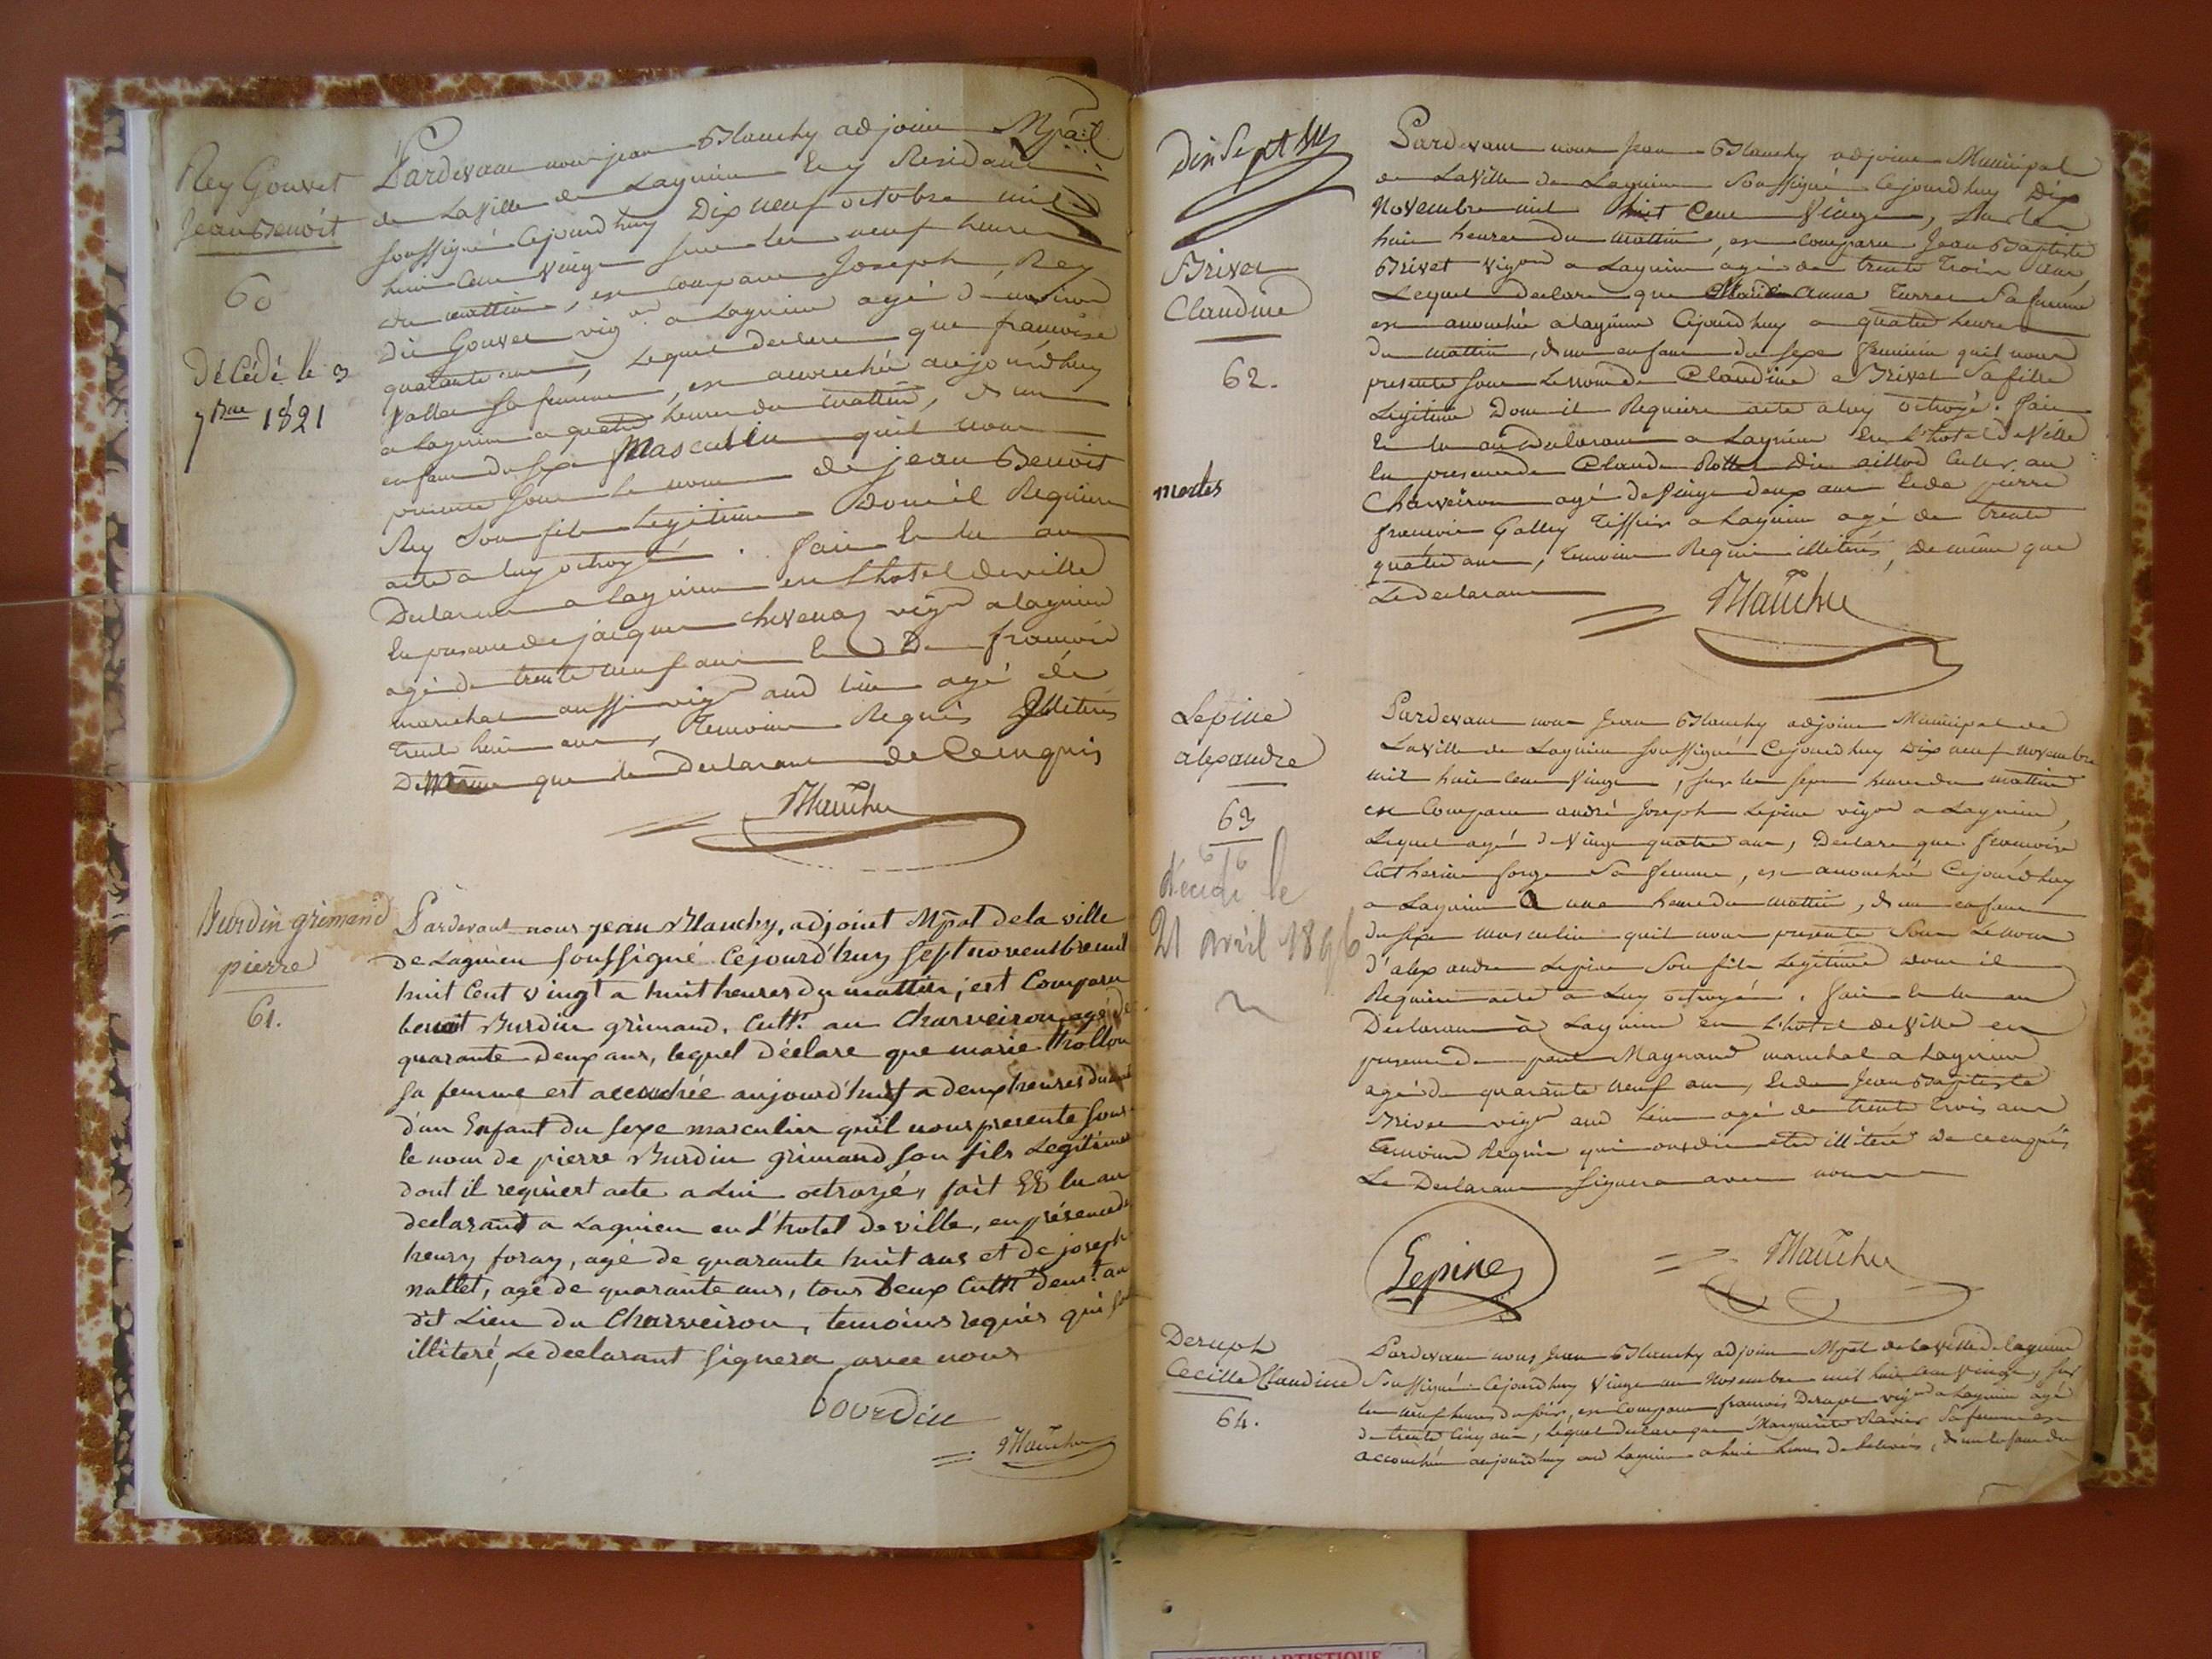 Rey Gouvet
Jean Benoit
60
Décédé le 3
7bre 1821
Pardevant nous jean Blanchy adjoint Mpal
de la Ville de Lagnieu et y Residant
soussigné Cejourdhuy Dix neuf octobre mil
huit Cent Vingt sur les neuf heures
du mattin, est comparu Joseph Rey
dit Gouvet vigon a Lagnieu agé d'environ
quarante ans, Lequel declare que francoise
Vallet sa femme, est accouchée aujourdhuy
a Lagnieu a quatre heures du mattin, d'un
enfant du sexe Masculin quil nous
presente sous le nom de jean Benoit
Rey son fils Legitime Dont il Requiere
acte a luy octroyé. fait et lu au
Declarant a Lagnieu en l'hotel deville
En presence de jacques chevenay vigon a lagnieu
agé de trente neuf ans et De francois
marechal aussi vigon aud lieu agé de
trente huit ans, Temoins Requis Illiterés
De Même que le Declarant de Ce enquis
Blanchy
Burdin grimand
pierre
61.
Pardevant nous jean Blanchy, adjoint Mpal de la ville
de Lagnieu soussigné Cejourd'huy sept novembre mil
huit Cent vingt a huit heures du mattin, est Comparu
benoit Burdin grimand, Cultr. au Charveiron agé de
quarante Deux ans, lequel déclare que marie thollon
sa femme est accouchée aujourd'huy a deux heures du
d'un Enfant du sexe masculin quil nous presente sous
le nom de pierre Burdin grimand son fils Legitime
dont il requiert acte a lui octroyé, fait Et lu au
declarant a Lagnieu en L'hotel de ville, en présence de
henry foray, agé de quarante huit ans et de joseph
nallet, agé de quarante ans, tous Deux Cultr demt. au
dit Lieu du Charveiron, temoins requis qui
illiteré, Le declarant signera avec nous
bourdin
Blanchy
Dix Sept
Brivet
Claudine
62.
mortes
Pardevant nous Jean Blanchy adjoint Municipal
de La Ville de Lagnieu Soussigné Cejourdhuy Dix
Novembre mil huit Cent Vingt, Sur les
huit heures du mattin, est comparu Jean Baptiste
Brivet Vigon a Lagnieu agé de trente Trois ans,
Lequel declare que Marie Anne Turrel Sa femme
est accouchée a lagnieu Cejourdhuy a quatre heures
du mattin, d'un enfant du sexe feminin quil nous
presente sous Le nom de Claudine Brivet Sa fille
Legitime Dont il Requiere acte a luy octroyé. fait
et lu au Declarant a Lagnieu En L'hotel de Ville
En presence de Claude Rollet dit aillod Cultr. au
Charveiron agé de Vingt deux ans et de pierre
francois Galley Tissier a Lagnieu agé de trente
quatre ans, temoins Requis illiterés, de même que
Le declarant
Blanchy
Lepine
alexandre
63
décédé le
21 avril 1896
Pardevant nous Jean Blanchy adjoint Municipal de
La Ville de Lagnieu soussigné Cejourdhuy Dix neuf novembre
mil huit Cent Vingt, sur les sept heures du mattin
est Comparu andré Joseph Lepine vigon a Lagnieu,
Lequel agé de Vingt quatre ans, Declare que francoise
Catherine forge Sa femme, est accouchée Cejourdhuy
a Lagnieu a une heure du mattin, d'un enfant
du sexe masculin quil nous presente Sous Le nom
d'alexandre Lepine Son fils Legitime dont il
Requiere acte a Luy octroyé. fait et lu au
Declarant à Lagnieu en L'hotel de Ville en
presence de paul Maynand marechal a Lagnieu
agé de quarante neuf ans, et de Jean Baptiste
Brivet vigon aud Lieu agé de trente trois ans
temoins Requis qui ont dit etre illiteré de ce enquis
Le Declarant signera avec nous
Lepine
Blanchy
Deruph
Cecille Claudine
64.
Pardevant nous Jean Blanchy adjoint Mpal de la Ville de lagnieu
Soussigné Cejourdhuy Vingt un Novembre mil huit Cent Vingt, sur
les neuf heures du soir, est Comparu francois Deruph vigon a Lagnieu agé
de trente Cinq ans, Lequel declare que Marguerite Ravier Sa femme est
accouchée aujourdhuy aud Lagnieu a huit heures, d'un Enfant du